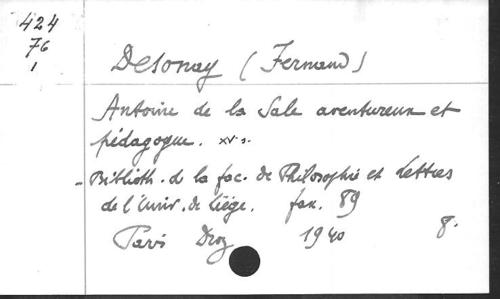 424
76
1
Desonay (Fernand)
Antoine de la Sale aventureux et
pédagogue. XVe s.
- Biblioth. de la fac. de Philosophie et Lettres
de l'Univ. de Liége. fax. 89
Paris Droz 1940 8.